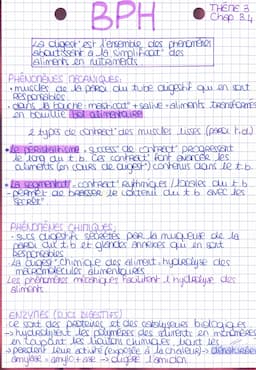 BPH
THÈME 3
Chap 3.4
La digest° est l'ensemble des phénomènes
aboutissant à la simplificat° des
aliments en nutriments.
PHÉNOMÈNES MÉCANIQUES:
• muscles de la paroi du tube digestif qui en sont
responsables
• dans la bouche: masticat° + salive → aliments transformés
en bouillie bol alimentaire
2 types de contract° des muscles lisses (paroi t.d.)
• Le péristaltisme: success° de contract° progressant
le long du t.b. Ces contract° font avancer les
aliments (en cours de digest°) contenus dans le t.b.
• La segmentat°: contract° rythmiques / locales du t.b.
permet de brasser le contenu du t.b. avec les
sécrét°
PHÉNOMÈNES CHIMIQUES:
• sucs digestifs sécrétés par la muqueuse de la
paroi du t.b et glandes annexes qui en sont
responsables
La digest° chimique des aliments: hydrolyse des
macromolécules alimentaires
Les phénomènes mécaniques facilitent l'hydrolyse des
aliments.
ENZYMES (SUCS DIGESTIFS)
Ce sont des protéines et des catalyseurs biologiques
→ hydrolysent les polymères des aliments en monomères
en coupant les liaisons chimiques
→ perdent leur activité (exposée à la chaleur) → dénaturées
amylase = amyl + ase → digère l'amidon